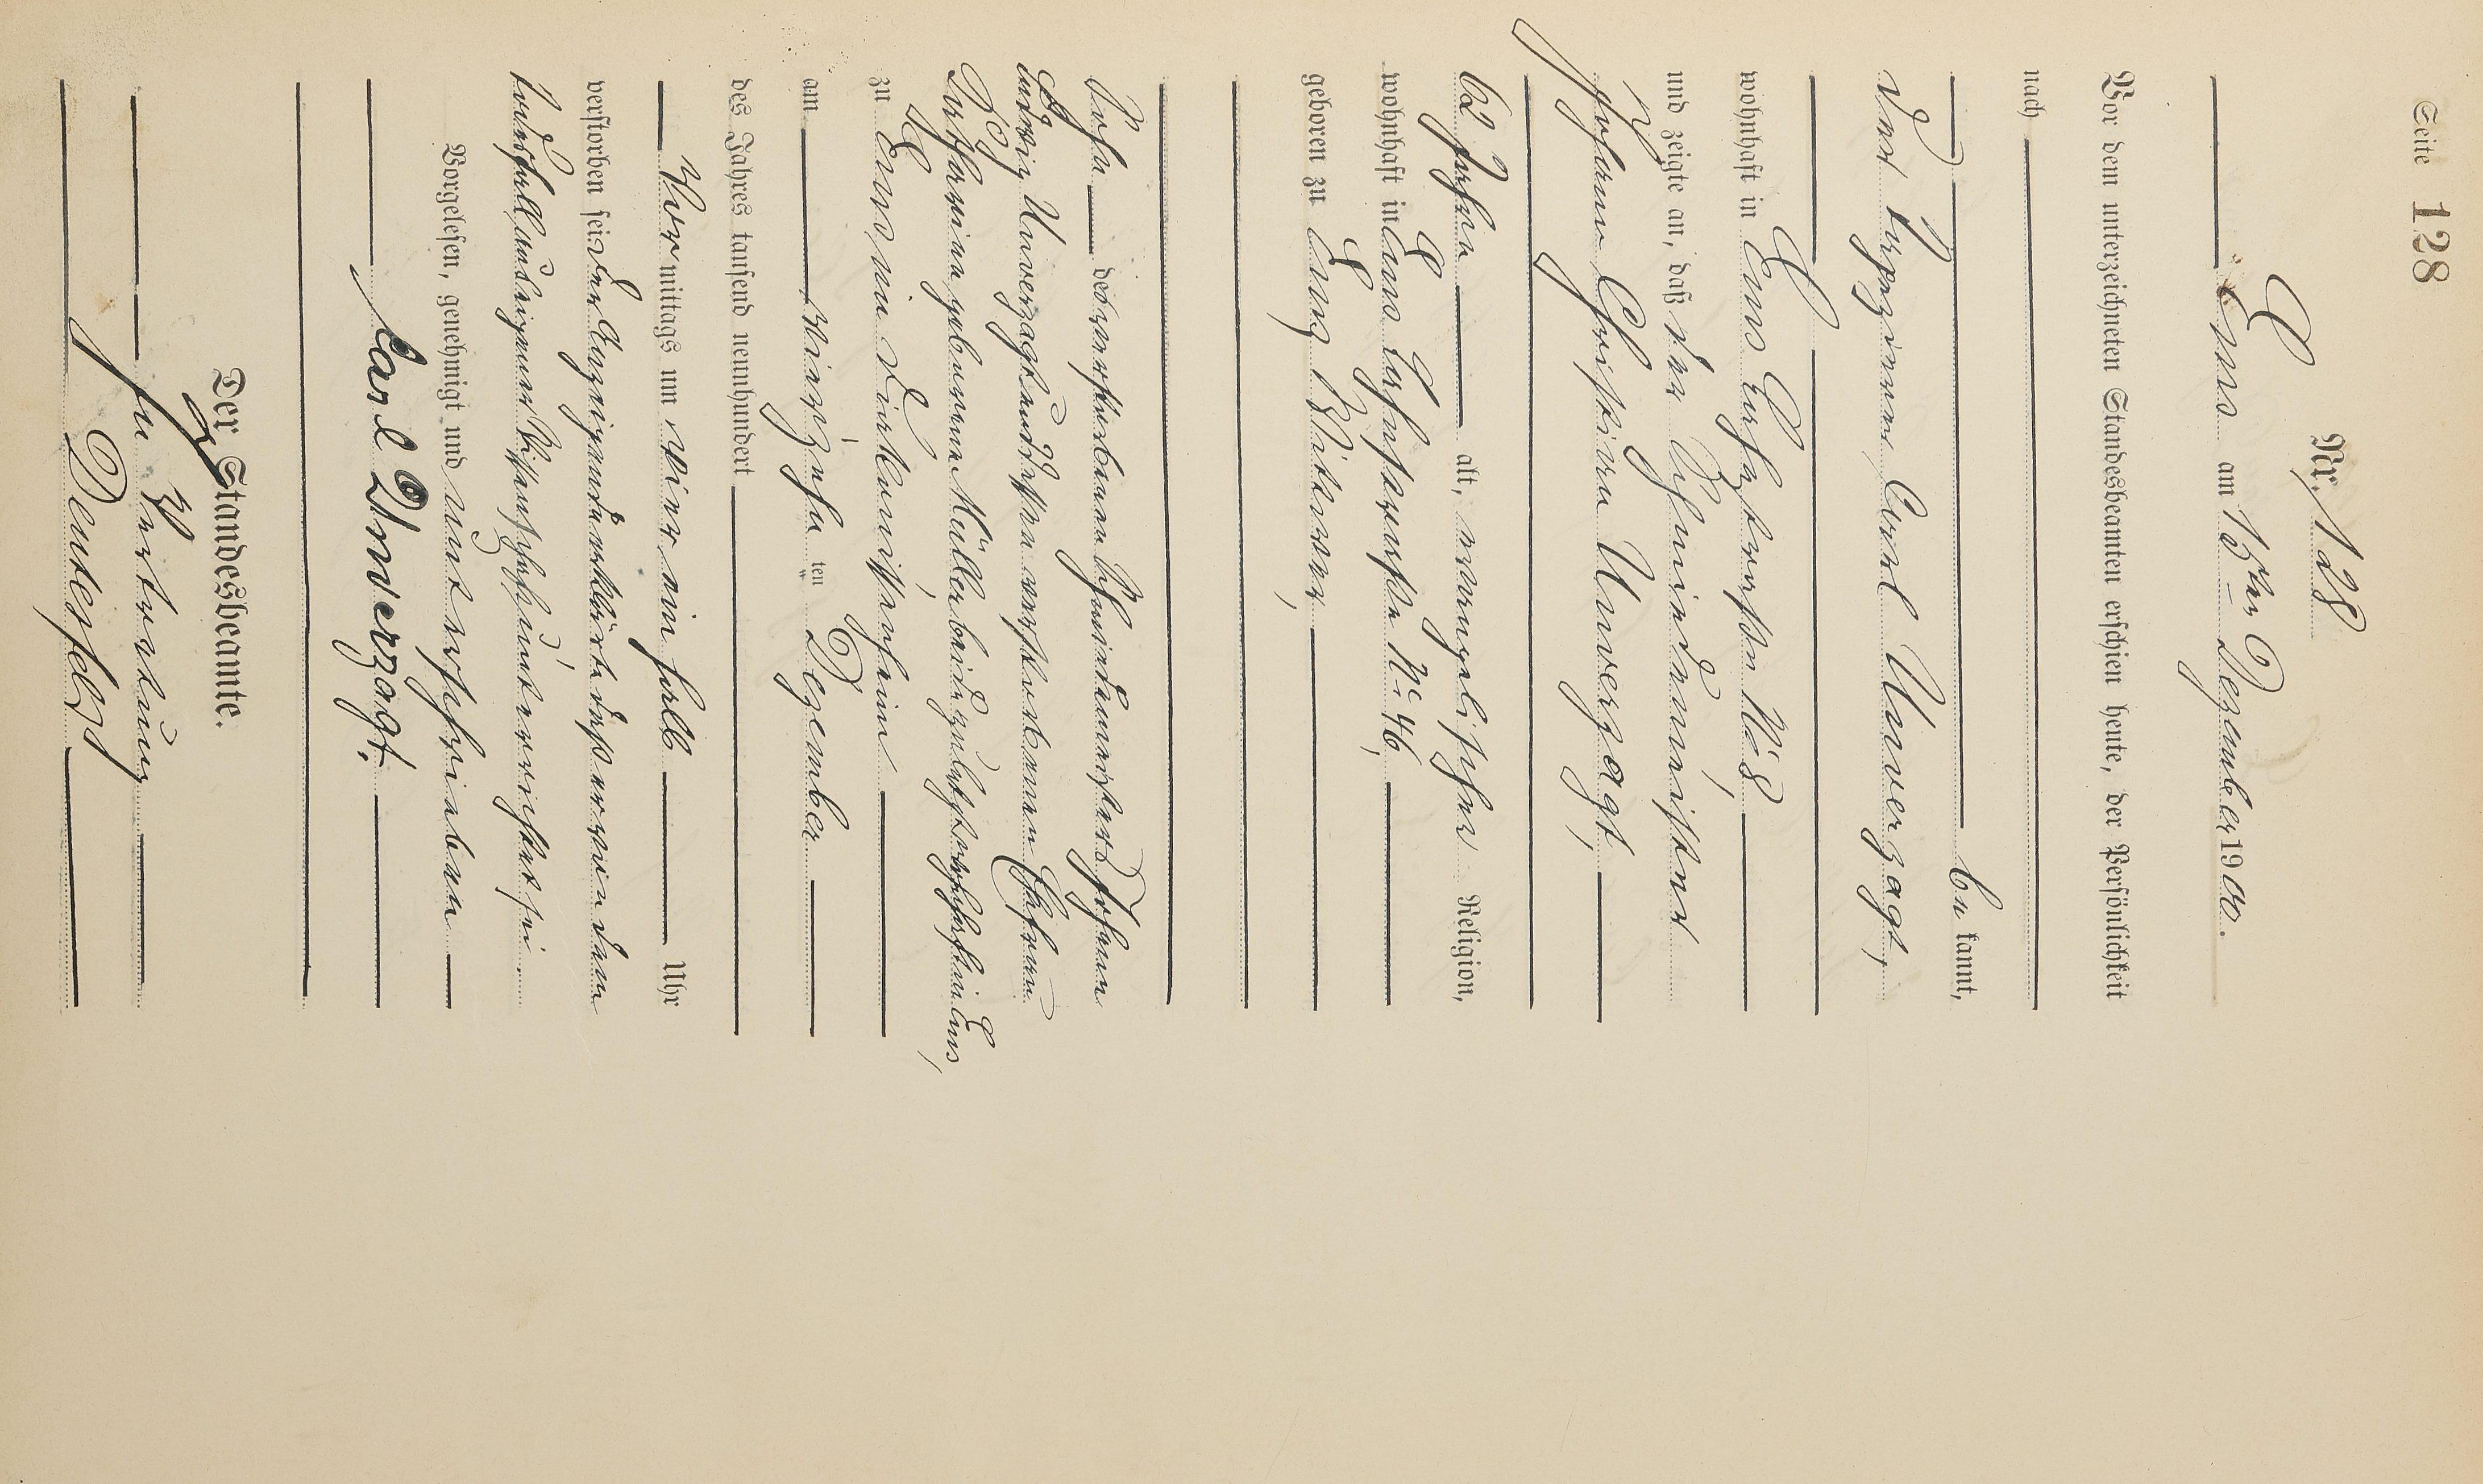 Seite 128
Nr. 128
Ems am 15ten Dezember 1900.
Vor dem unterzeichneten Standesbeamten erschien heute, der Persönlichkeit
nach
be kannt,
der Tapezierer Carl Unverzagt,
wohnhaft in Ems Lahnstraße No 8
und zeigte an, daß der Schneidermeister
Johann Christian Unverzagt,
62 Jahre alt, evangelischer Religion,
wohnhaft in Ems Lahnstraße No 46,
geboren zu Ems, Wittwer,
Sohn des verstorbenen Johann
Ludwig Unverzagt und dessen verstorbenen Ehefrau
geborenen Müller beide zuletzt wohnhaft in Ems,
zu Ems in
am vierzehnten Dezember
des Jahres tausend neunhundert
Vor mittags um vier ein halb Uhr
verstorben sei der Anzeigende erklärte daß er von dem
Todesfall aus eigener Wissenschaft unterrichtet sei
Vorgelesen, genehmigt und unterschrieben
Carl Unverzagt.
Der Standesbeamte.
In Vertretung